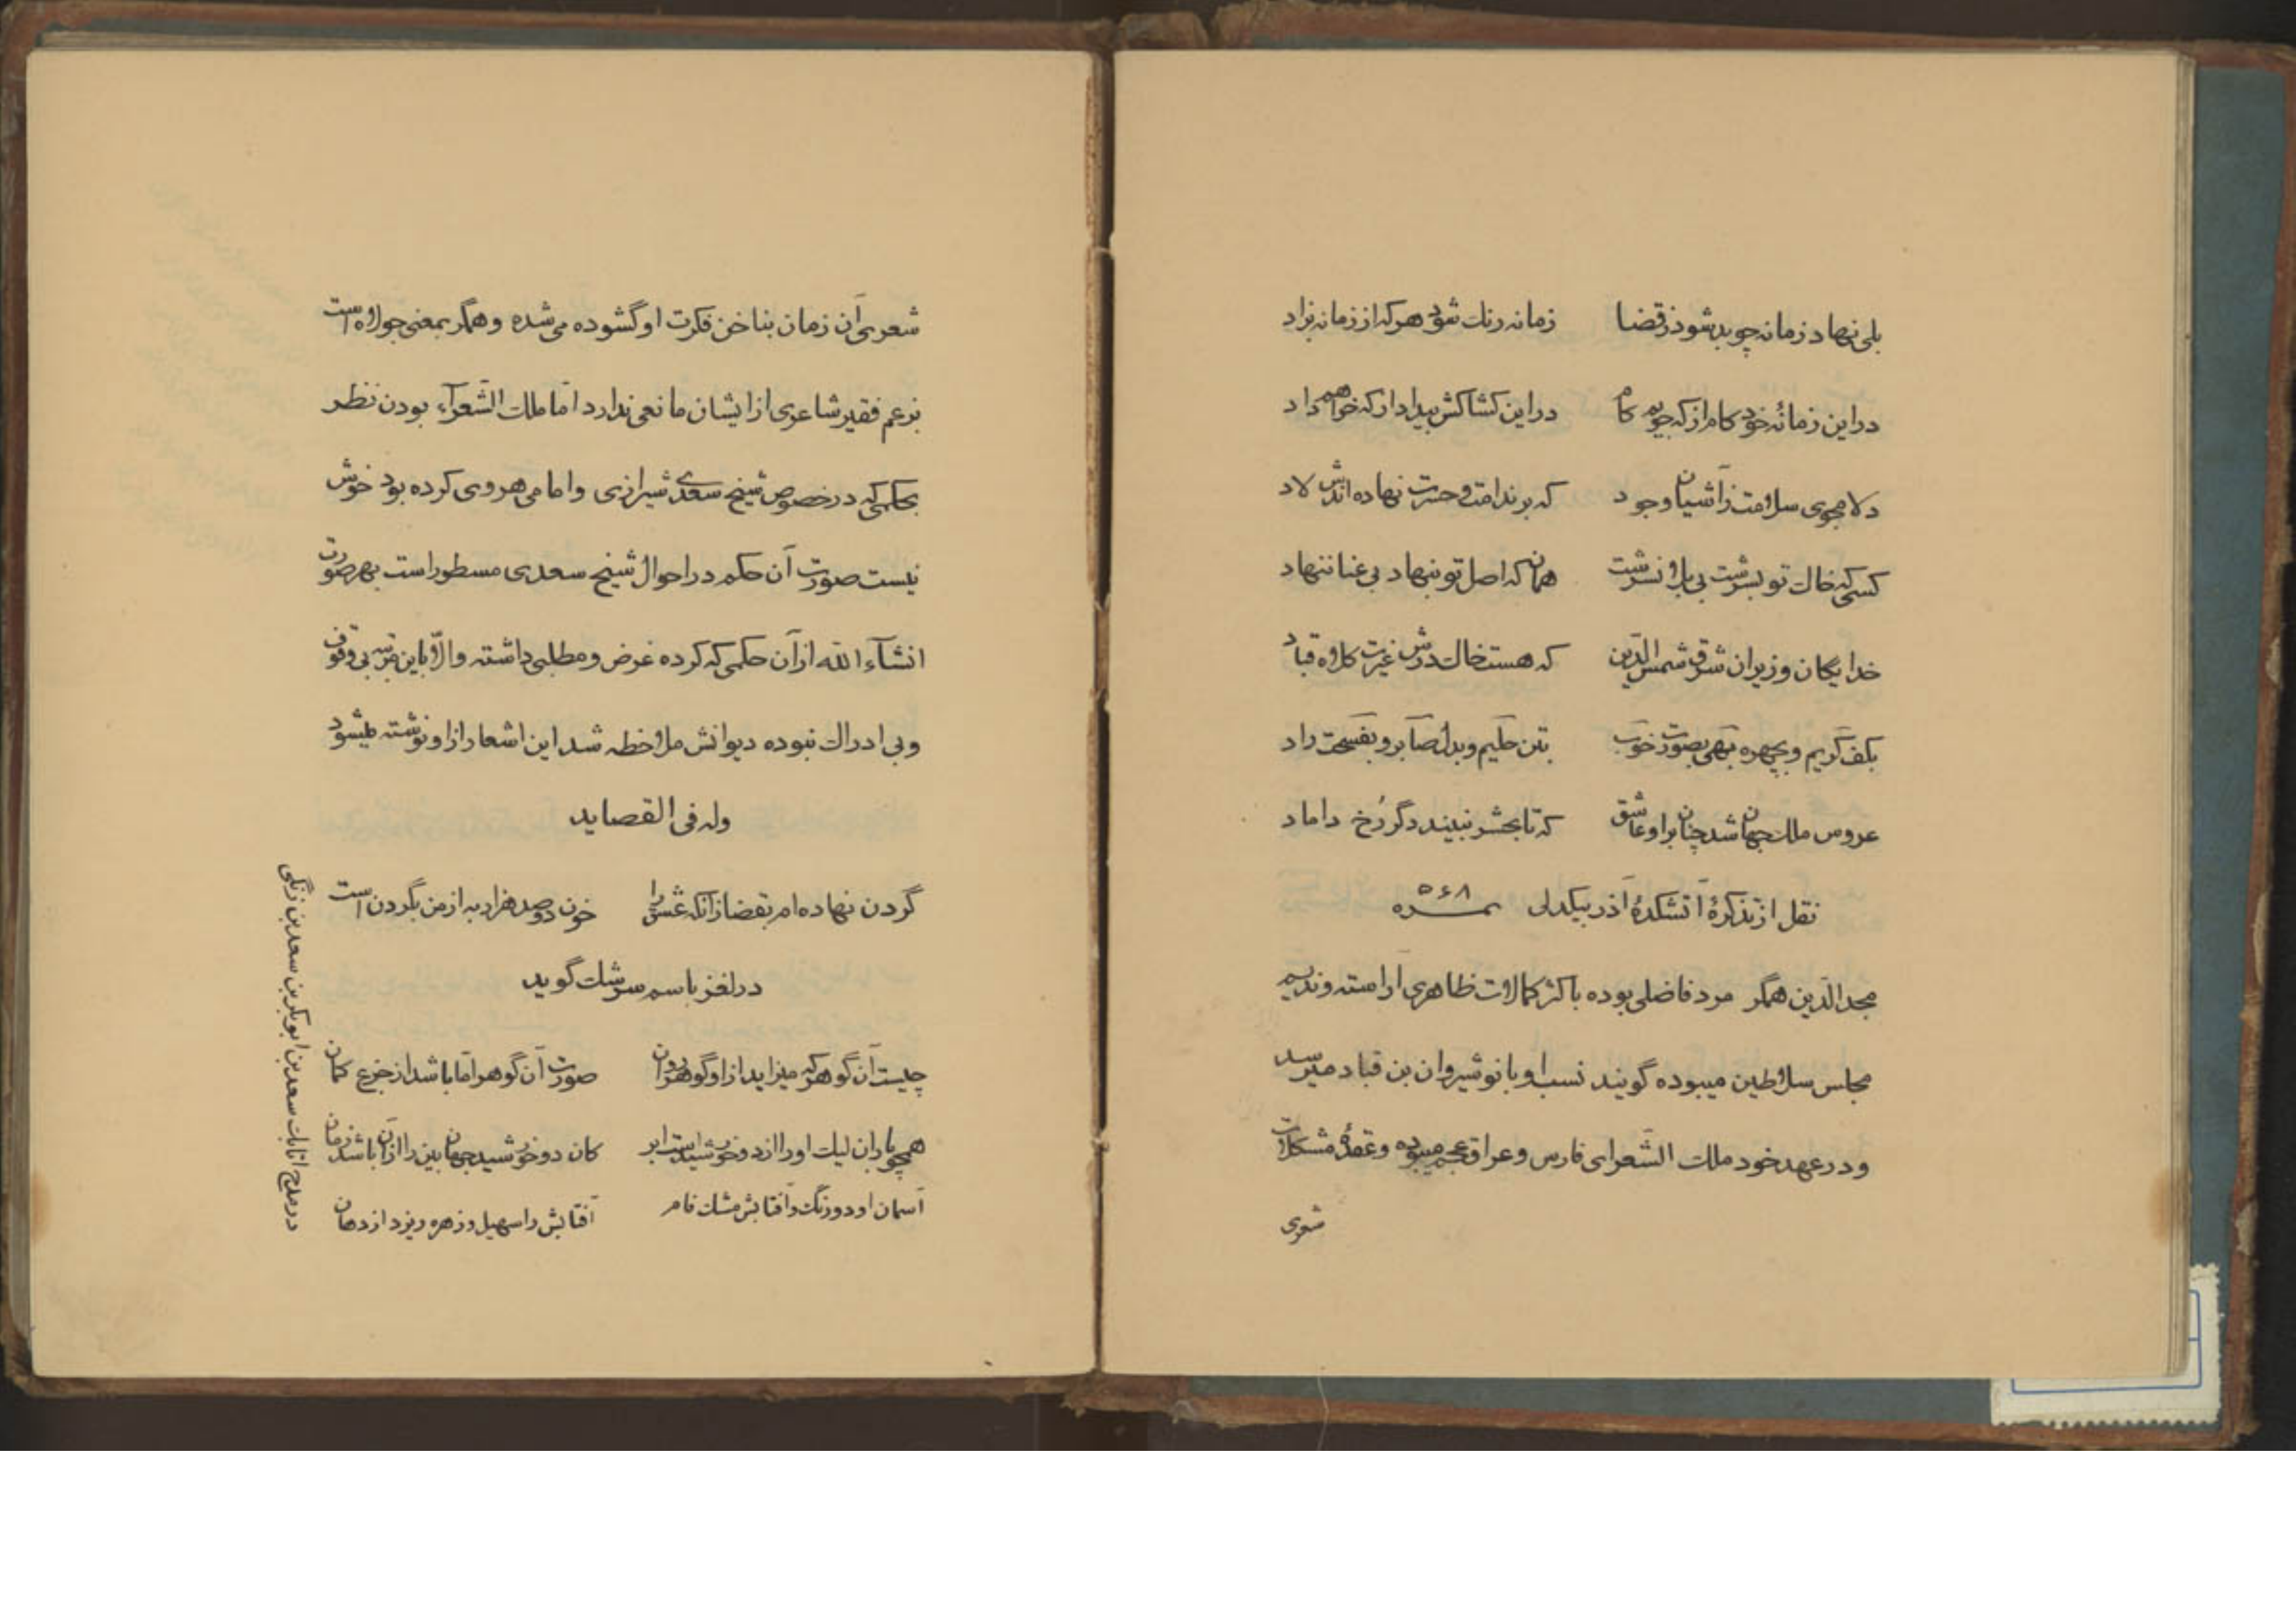 بلی نهاد زمانه چو بد شود ز قضا زمانه رنك شود هر که از زمانه بزاد
در این زمانهٔ خود کام از که جویم کام در این کشاکش بیداد از که خواهم داد
دلا مجوی سلامت ز آشیان وجود که بر ندامت و حسرت نهاده اندش لاد
کسی که خاك تو بسرشت بی بلا نسرشت همان که اصل تو بنهاد بی عنا ننهاد
خدایگان وزیران شرق شمس الدّین که هست خاك درش غیرت کلاه قباد
بکف کریم و بچهره بهی بصورت خوب بتن حلیم و بدل صابر و بنفس راد
عروس ملك جهان شد چنان بر او عاشق که تا بحشر نبیند دگر رُخ داماد
نقل از تذکرهٔ آتشکدهٔ آذر بیکدلی نمره ۵۶۸
مجد الدّین همگر مرد فاضلی بوده باکثر کمالات ظاهری آراسته و ندیم
مجلس سلاطین میبوده گویند نسب او بانوشیروان بن قباد میرسد
و در عهد خود ملك الشّعرای فارس و عراق عجم میبوده و عقدهٔ مشکلات
شعری
شعری آن زمان بناخن فکرت او گشوده می شده و همگر بمعنی جولاه است
بزعم فقیر شاعری از ایشان مانعی ندارد امّا ملك الشّعرآء بودن نظر
بحکمی که در خصوص شیخ سعدی شیرازی و امامی هروی کرده بود خوش
نیست صورت آن حکم در احوال شیخ سعدی مسطور است بهر صورت
انشآء الله از آن حکمی که کرده غرض و مطلبی داشته والّا باین مرتبه بی وقوف
و بی ادراك نبوده دیوانش ملاحظه شد این اشعار از او نوشته میشود
وله فی القصاید
گردن نهاده ام بقضا زانکه عشق را خون دو صد هزار به از من بگردن است
در لغز باسم سرشك گوید
چیست آن گوهر که میزاید از او گوهر روان صورت آن گوهر امّا باشد از جزع کان
همچو باران لیك او را از دو خورشیدست ابر کان دو خورشید جهان بین را از آن باشد زمان
آسمان او دو رنگ و آفتابش مشك فام آفتابش را سهیل و زهره ریزد از دهان
در مدح اتابك سعد بن ابو بکر بن سعد بن زنگی